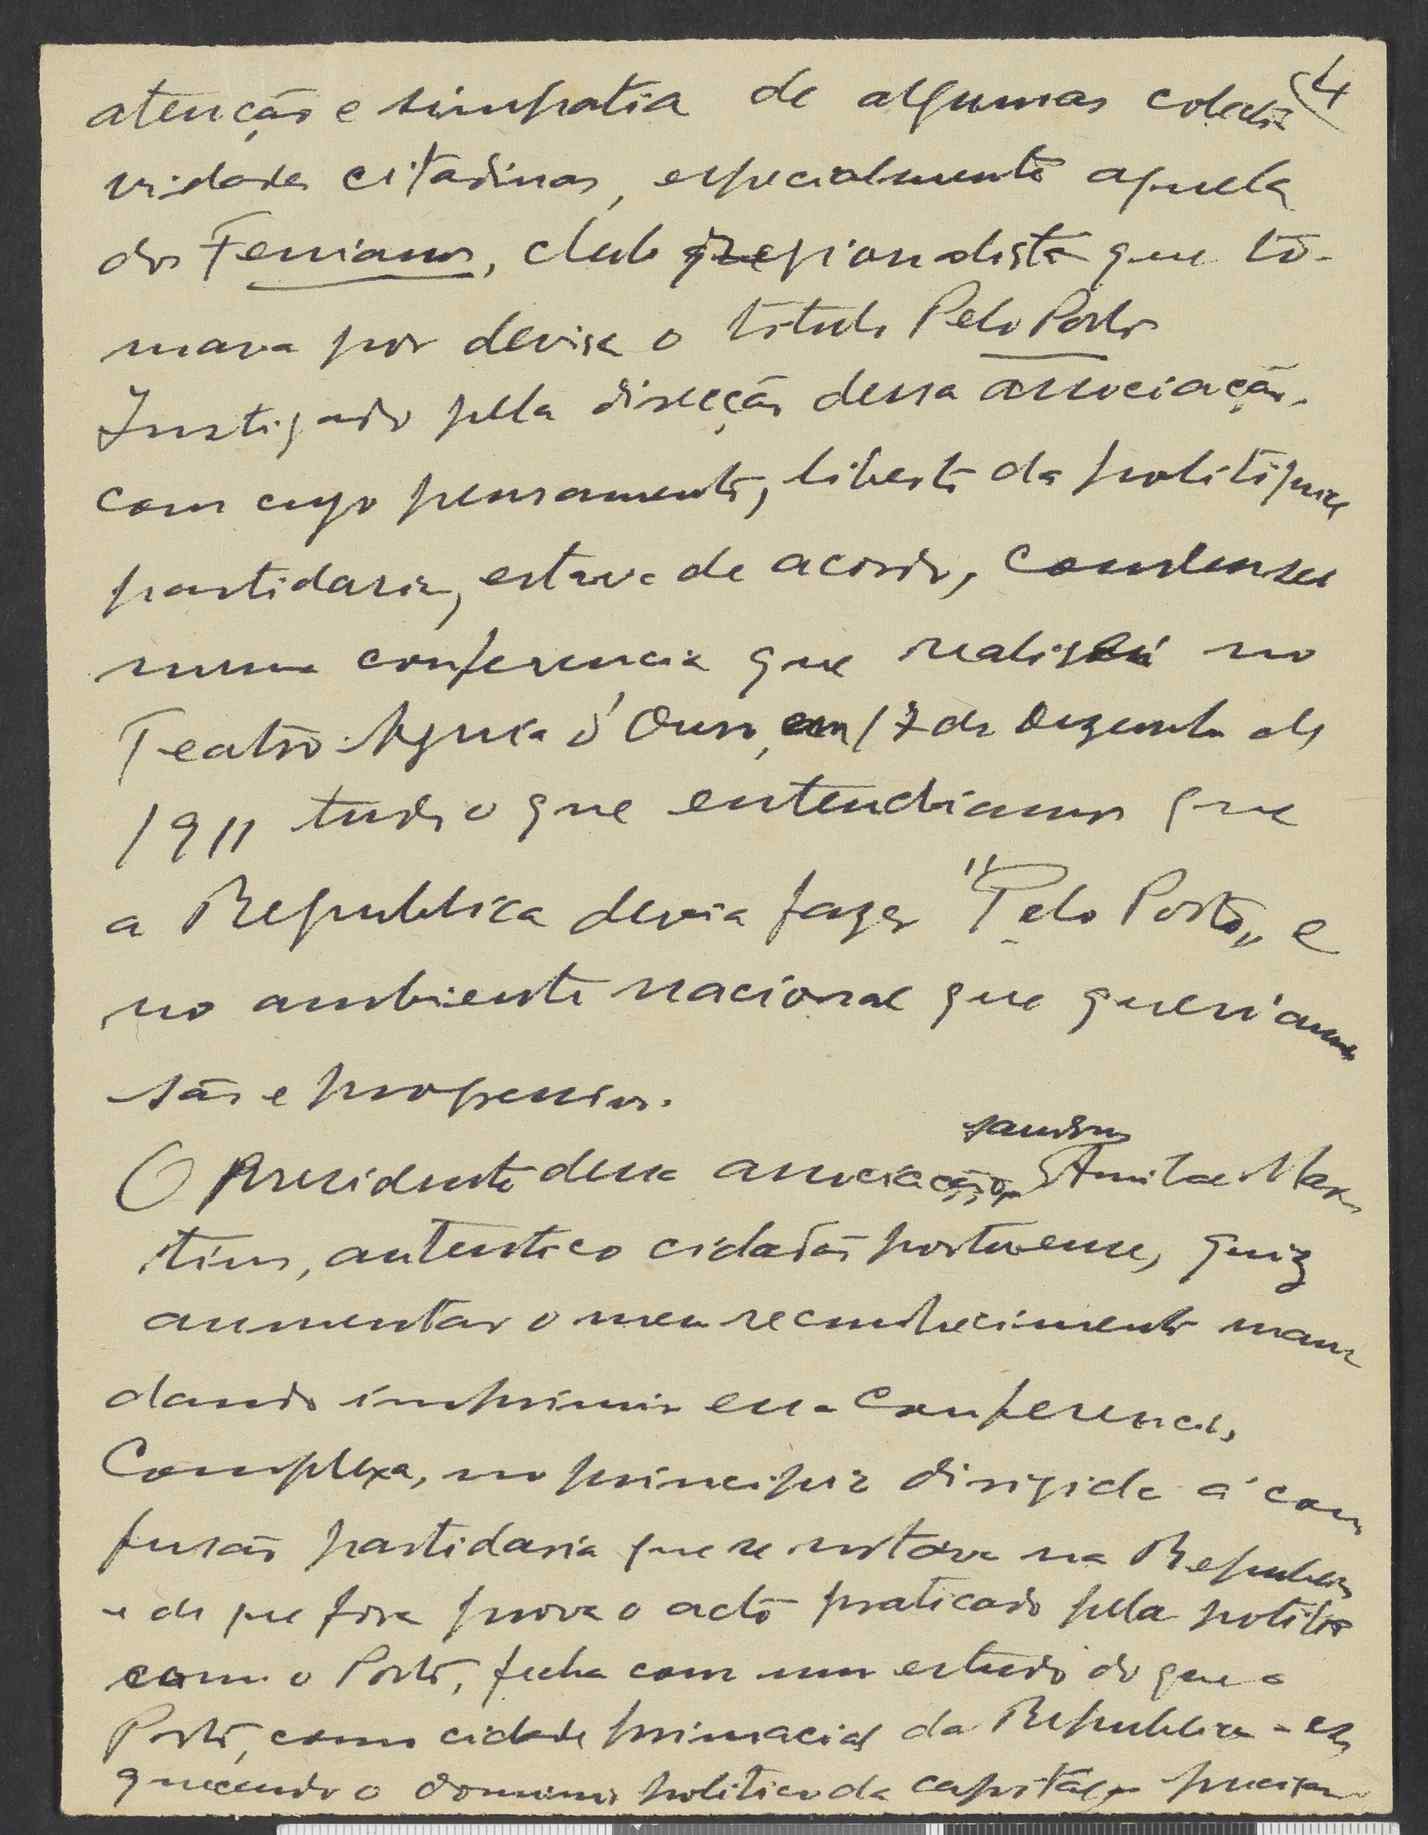 4
atenção e simpatia de algumas colecti
vidades citadinas, especialmente aquela
dos Fenianos, club regionalista que to-
mava por devisa o titulo Pelo Porto
Instigado pela direcção dessa associação,
com cujo pensamento, liberto da politiquice
partidaria, estava de acordo, condensei
numa conferencia que realisei no
Teatro Aguia d'Ouro, em 17 de Dezembro de
1911 tudo o que entendiamos que
a Republica devia fazer "Pelo Porto„ e
no ambiente nacional que queriamos
são e progressivo.
saudoso
O presidente dessa associação Amilcar Mar
tins, autentico cidadão portuense, quiz
aumentar o meu reconhecimento man
dando imprimir essa conferencia,
Complexa, no principio dirigida á con
fusão partidaria que se notava na Republica
e de que fora prova o acto praticado pela politica
com o Porto, fecha com um estudo do que o
Porto, como cidade primacial da Republica - es
quecendo o dominio politico da capital precisa